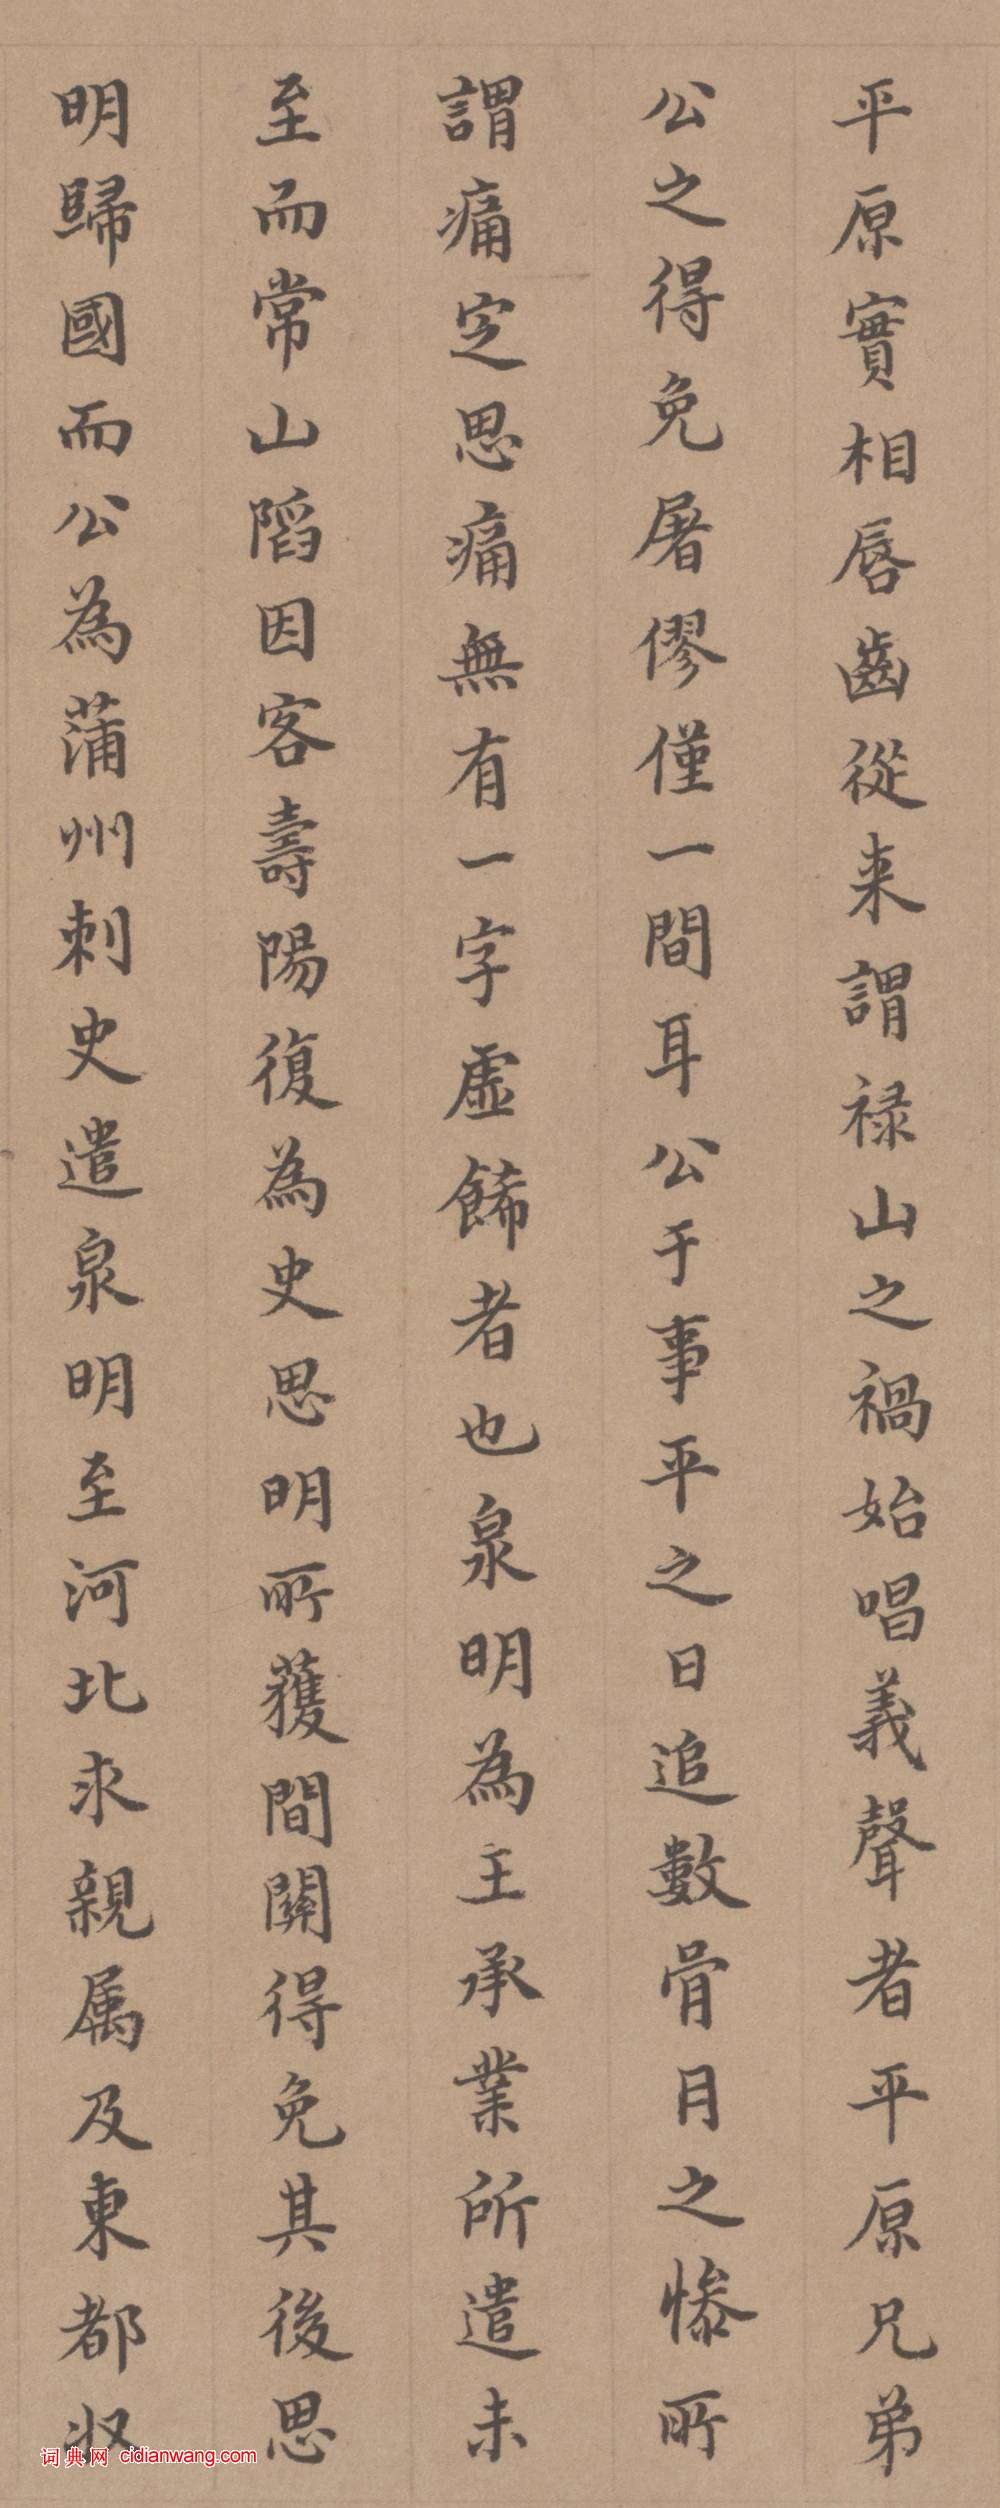 平原實相唇齒從来謂禄山之禍始唱義聲者平原兄弟
公之得免屠僇僅一間耳公于事平之日追數骨月之慘所
謂痛定思痛無有一字虛餙者也泉明為王承業所遣未
至而常山䧟因客壽陽復為史思明所獲間關得免其後思
明歸國而公為蒲州刺史遣泉明至河北求親属及東都収
词典网 cidianwang.com